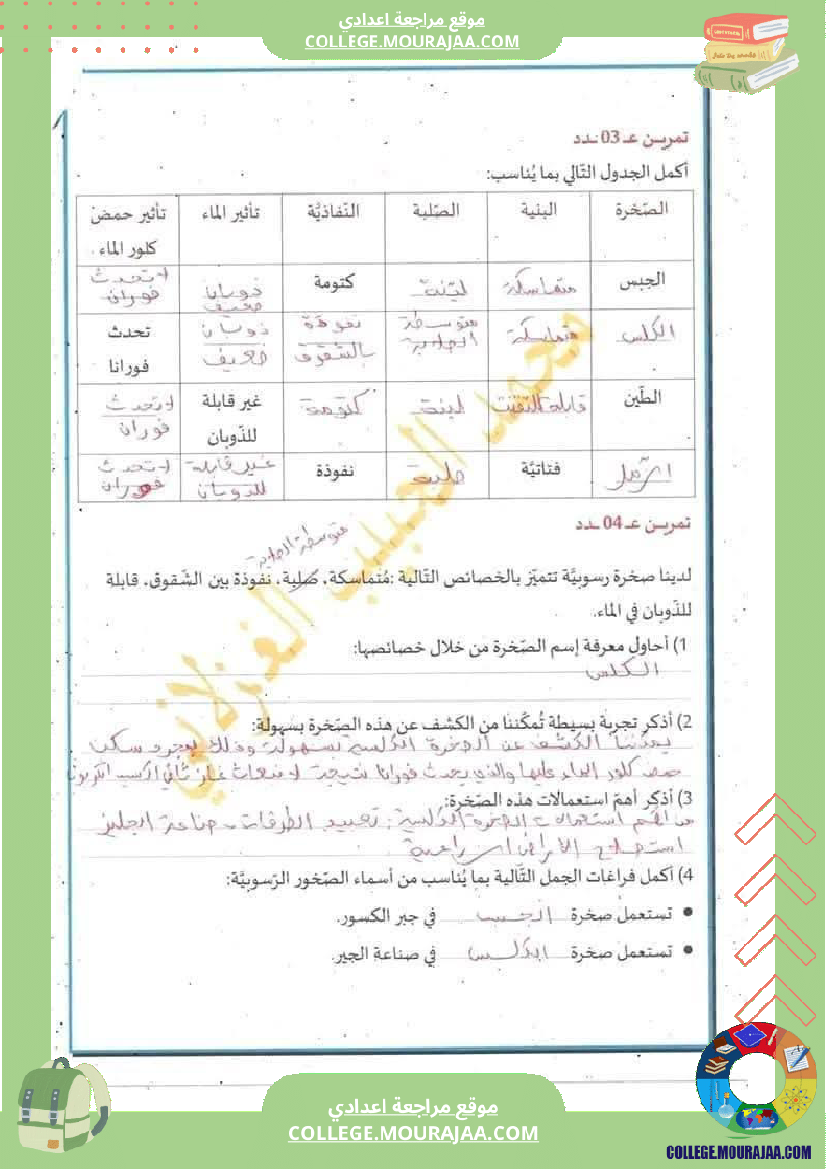 موقع مراجعة اعدادي
COLLEGE.MOURAJAA.COM
تمريـن عـ03ـدد
أكمل الجدول التّالي بما يُناسب:
الصّخرة البنية الصّلابة النّفاذيّة تأثير الماء تأثير حمض كلور الماء.
الجبس متماسكة ليّنة كتومة ذوبان ضعيف لا تحدث فوران
الكلس متماسكة متوسطة الصلابة نفوذة بالشقوق ذوبان ضعيف تحدث فورانا
الطّين قابلة للتفتت لينة كتومة غير قابلة للذّوبان لا تحدث فوران
الرّمل فتاتيّة صلبة نفوذة غير قابلة للذوبان لا تحدث فوران
محمد الحبيب الغزلاني
تمريـن عـ04ـدد
متوسطة الصلابة
لدينا صخرة رسوبيّة تتميّز بالخصائص التّالية :مُتماسكة، صلبة، نفوذة بين الشّقوق، قابلة
للذّوبان في الماء.
1) أحاول معرفة إسم الصّخرة من خلال خصائصها:
الكلس
2) أذكر تجربة بسيطة تُمكّننا من الكشف عن هذه الصّخرة بسهولة:
يمكننا الكشف عن الصخرة الكلسية بسهولة وذلك بمجرد سكب
حمض كلور الماء عليها والذي يحدث فورانا نتيجة لانبعاث غاز ثاني أكسيد الكربون
3) أذكر أهمّ استعمالات هذه الصّخرة:
من أهم استعمالات الصخرة الكلسية: تعبيد الطرقات - صناعة الجليز
استصلاح الأراضي الزراعية
4) أكمل فراغات الجمل التّالية بما يُناسب من أسماء الصّخور الرّسوبيّة:
• تستعمل صخرة الجبس في جبر الكسور.
• تستعمل صخرة الكلس في صناعة الجير.
موقع مراجعة اعدادي
COLLEGE.MOURAJAA.COM
COLLEGE.MOURAJAA.COM